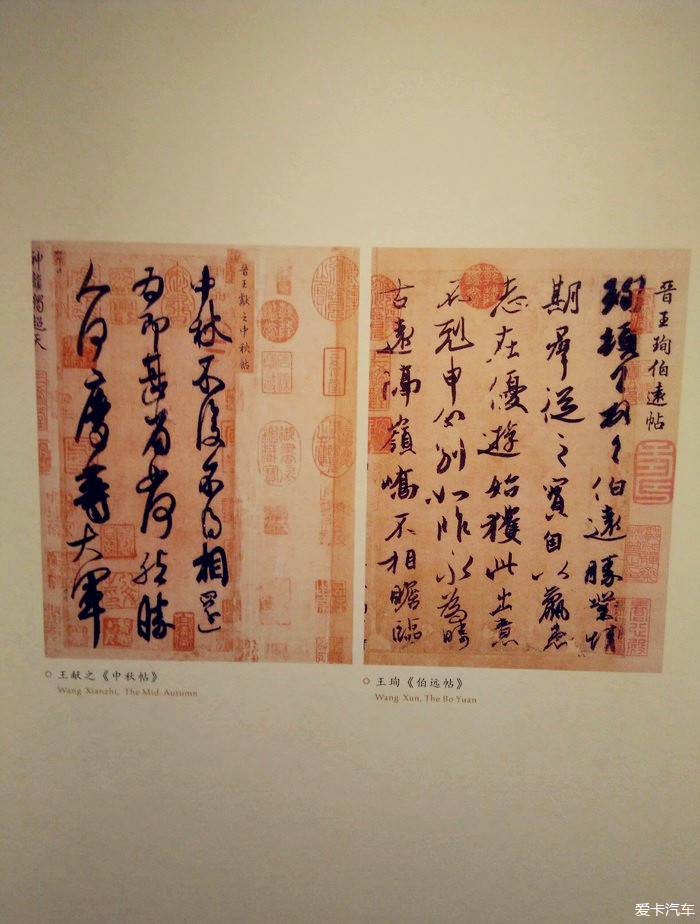 晉王獻之中秋帖
中秋不復不得相還
為即甚省如何然勝
人何慶等大軍
晉王珣伯遠帖
珣頓首頓首伯遠勝業情
期羣從之寶自以羸患
志在優遊始獲此出意
不剋申分別如昨永為疇
古遠隔嶺嶠不相瞻臨
王献之《中秋帖》
Wang Xianzhi, The Mid-Autumn
王珣《伯远帖》
Wang Xun, The Bo Yuan
爱卡汽车